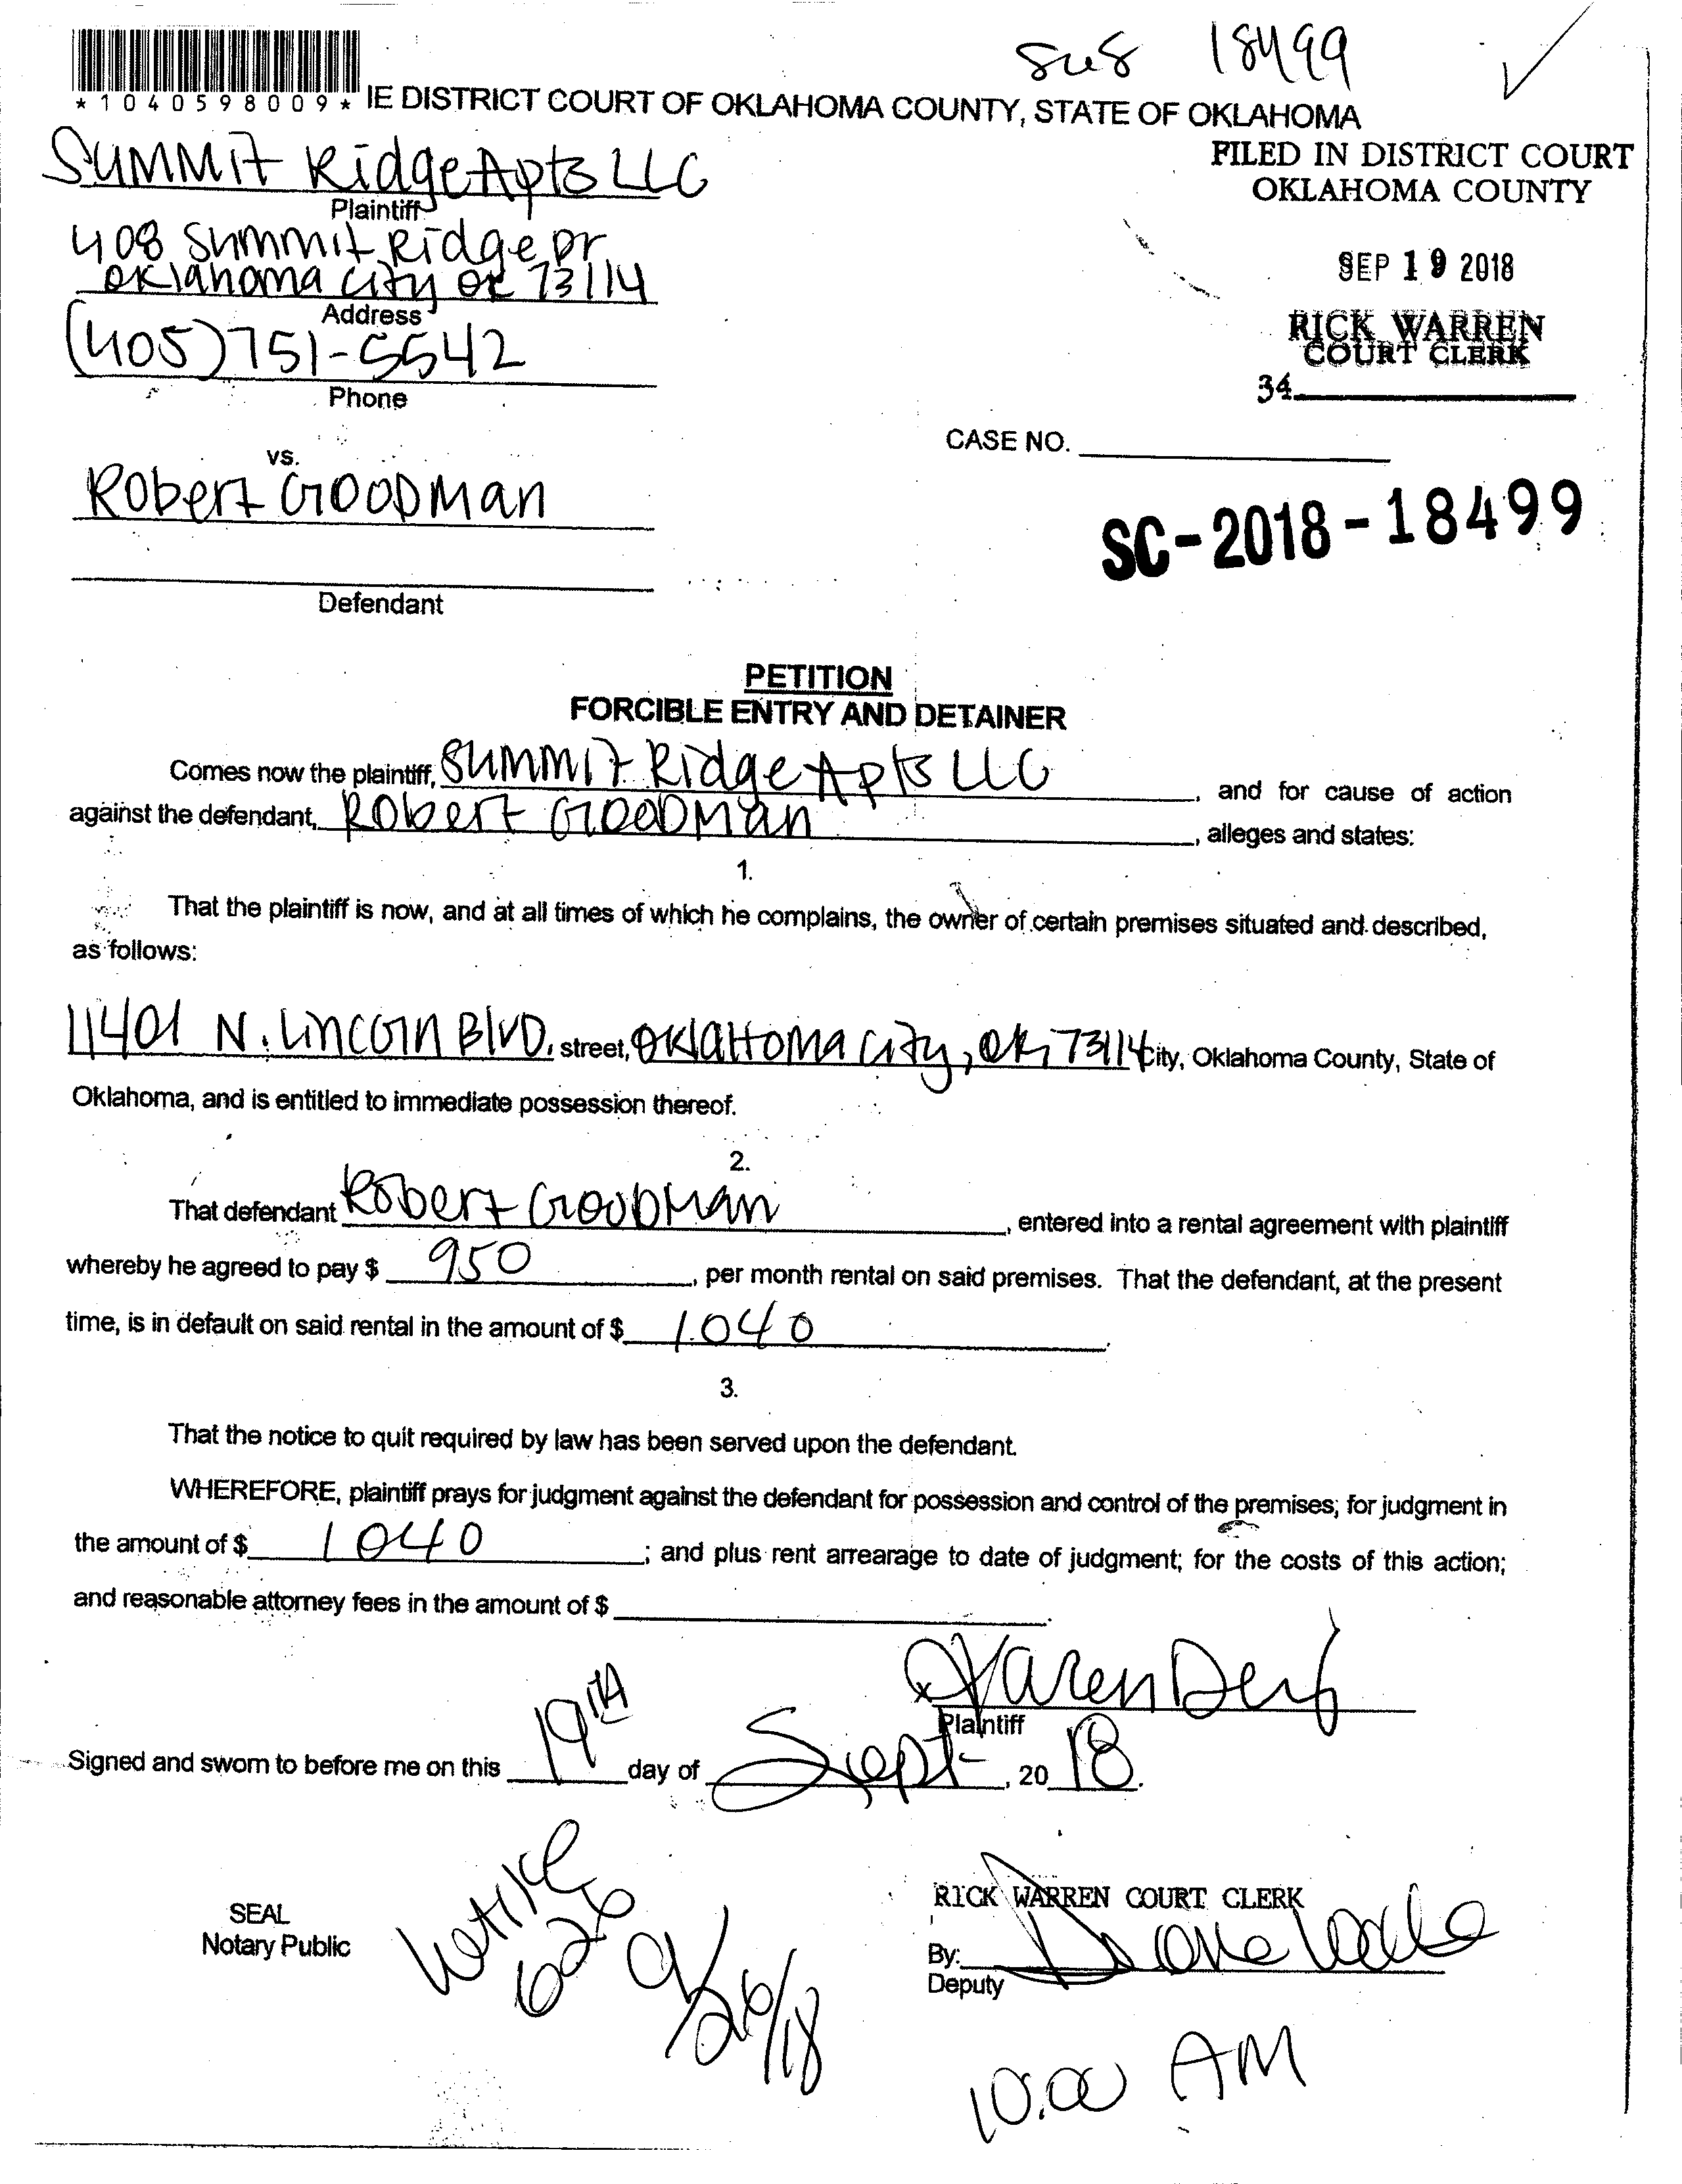 18499
*1040598009* IE DISTRICT COURT OF OKLAHOMA COUNTY, STATE OF OKLAHOMA
FILED IN DISTRICT COURT
OKLAHOMA COUNTY
SEP 19 2018
RICK WARREN
COURT CLERK
34
Summit Ridge Apts LLC
Plaintiff
408 Summit Ridge Dr
Oklahoma City OK 73114
Address
(405)751-5542
Phone
vs.
CASE NO.
Robert Goodman
SC-2018-18499
Defendant
PETITION
FORCIBLE ENTRY AND DETAINER
Comes now the plaintiff, Summit Ridge Apts LLC, and for cause of action
against the defendant, Robert Goodman, alleges and states:
1.
That the plaintiff is now, and at all times of which he complains, the owner of certain premises situated and described,
as follows:
11401 N. Lincoln Blvd. street, Oklahoma City, OK, 73114 City, Oklahoma County, State of
Oklahoma, and is entitled to immediate possession thereof.
2.
That defendant Robert Goodman, entered into a rental agreement with plaintiff
whereby he agreed to pay $ 950, per month rental on said premises. That the defendant, at the present
time, is in default on said rental in the amount of $ 1040.
3.
That the notice to quit required by law has been served upon the defendant.
WHEREFORE, plaintiff prays for judgment against the defendant for possession and control of the premises; for judgment in
the amount of $ 1040; and plus rent arrearage to date of judgment; for the costs of this action;
and reasonable attorney fees in the amount of $
Karen
Plaintiff
Signed and sworn to before me on this 19th day of Sept, 2018.
SEAL
Notary Public
626
9/26/18
RICK WARREN COURT CLERK
By:
Deputy
10:00 AM